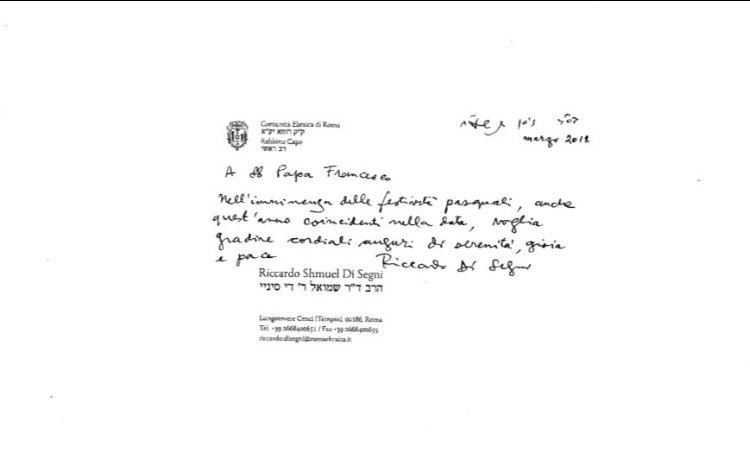 Comunità Ebraica di Roma
ק"ק רומא יע"א
Rabbino Capo
רב ראשי
ניסן
marzo 2018
A SS Papa Francesco
Nell'imminenza delle festività pasquali, anche
quest'anno coincidenti nella data, voglia
gradire cordiali auguri di serenità, gioia
e pace Riccardo Di Segni
Riccardo Shmuel Di Segni
הרב ד"ר שמואל ר' די סיניי
Lungotevere Cenci (Tempio), 00186, Roma
Tel. +39 0668400651 / Fax +39 0668400655
riccardo.disegni@romaebraica.it